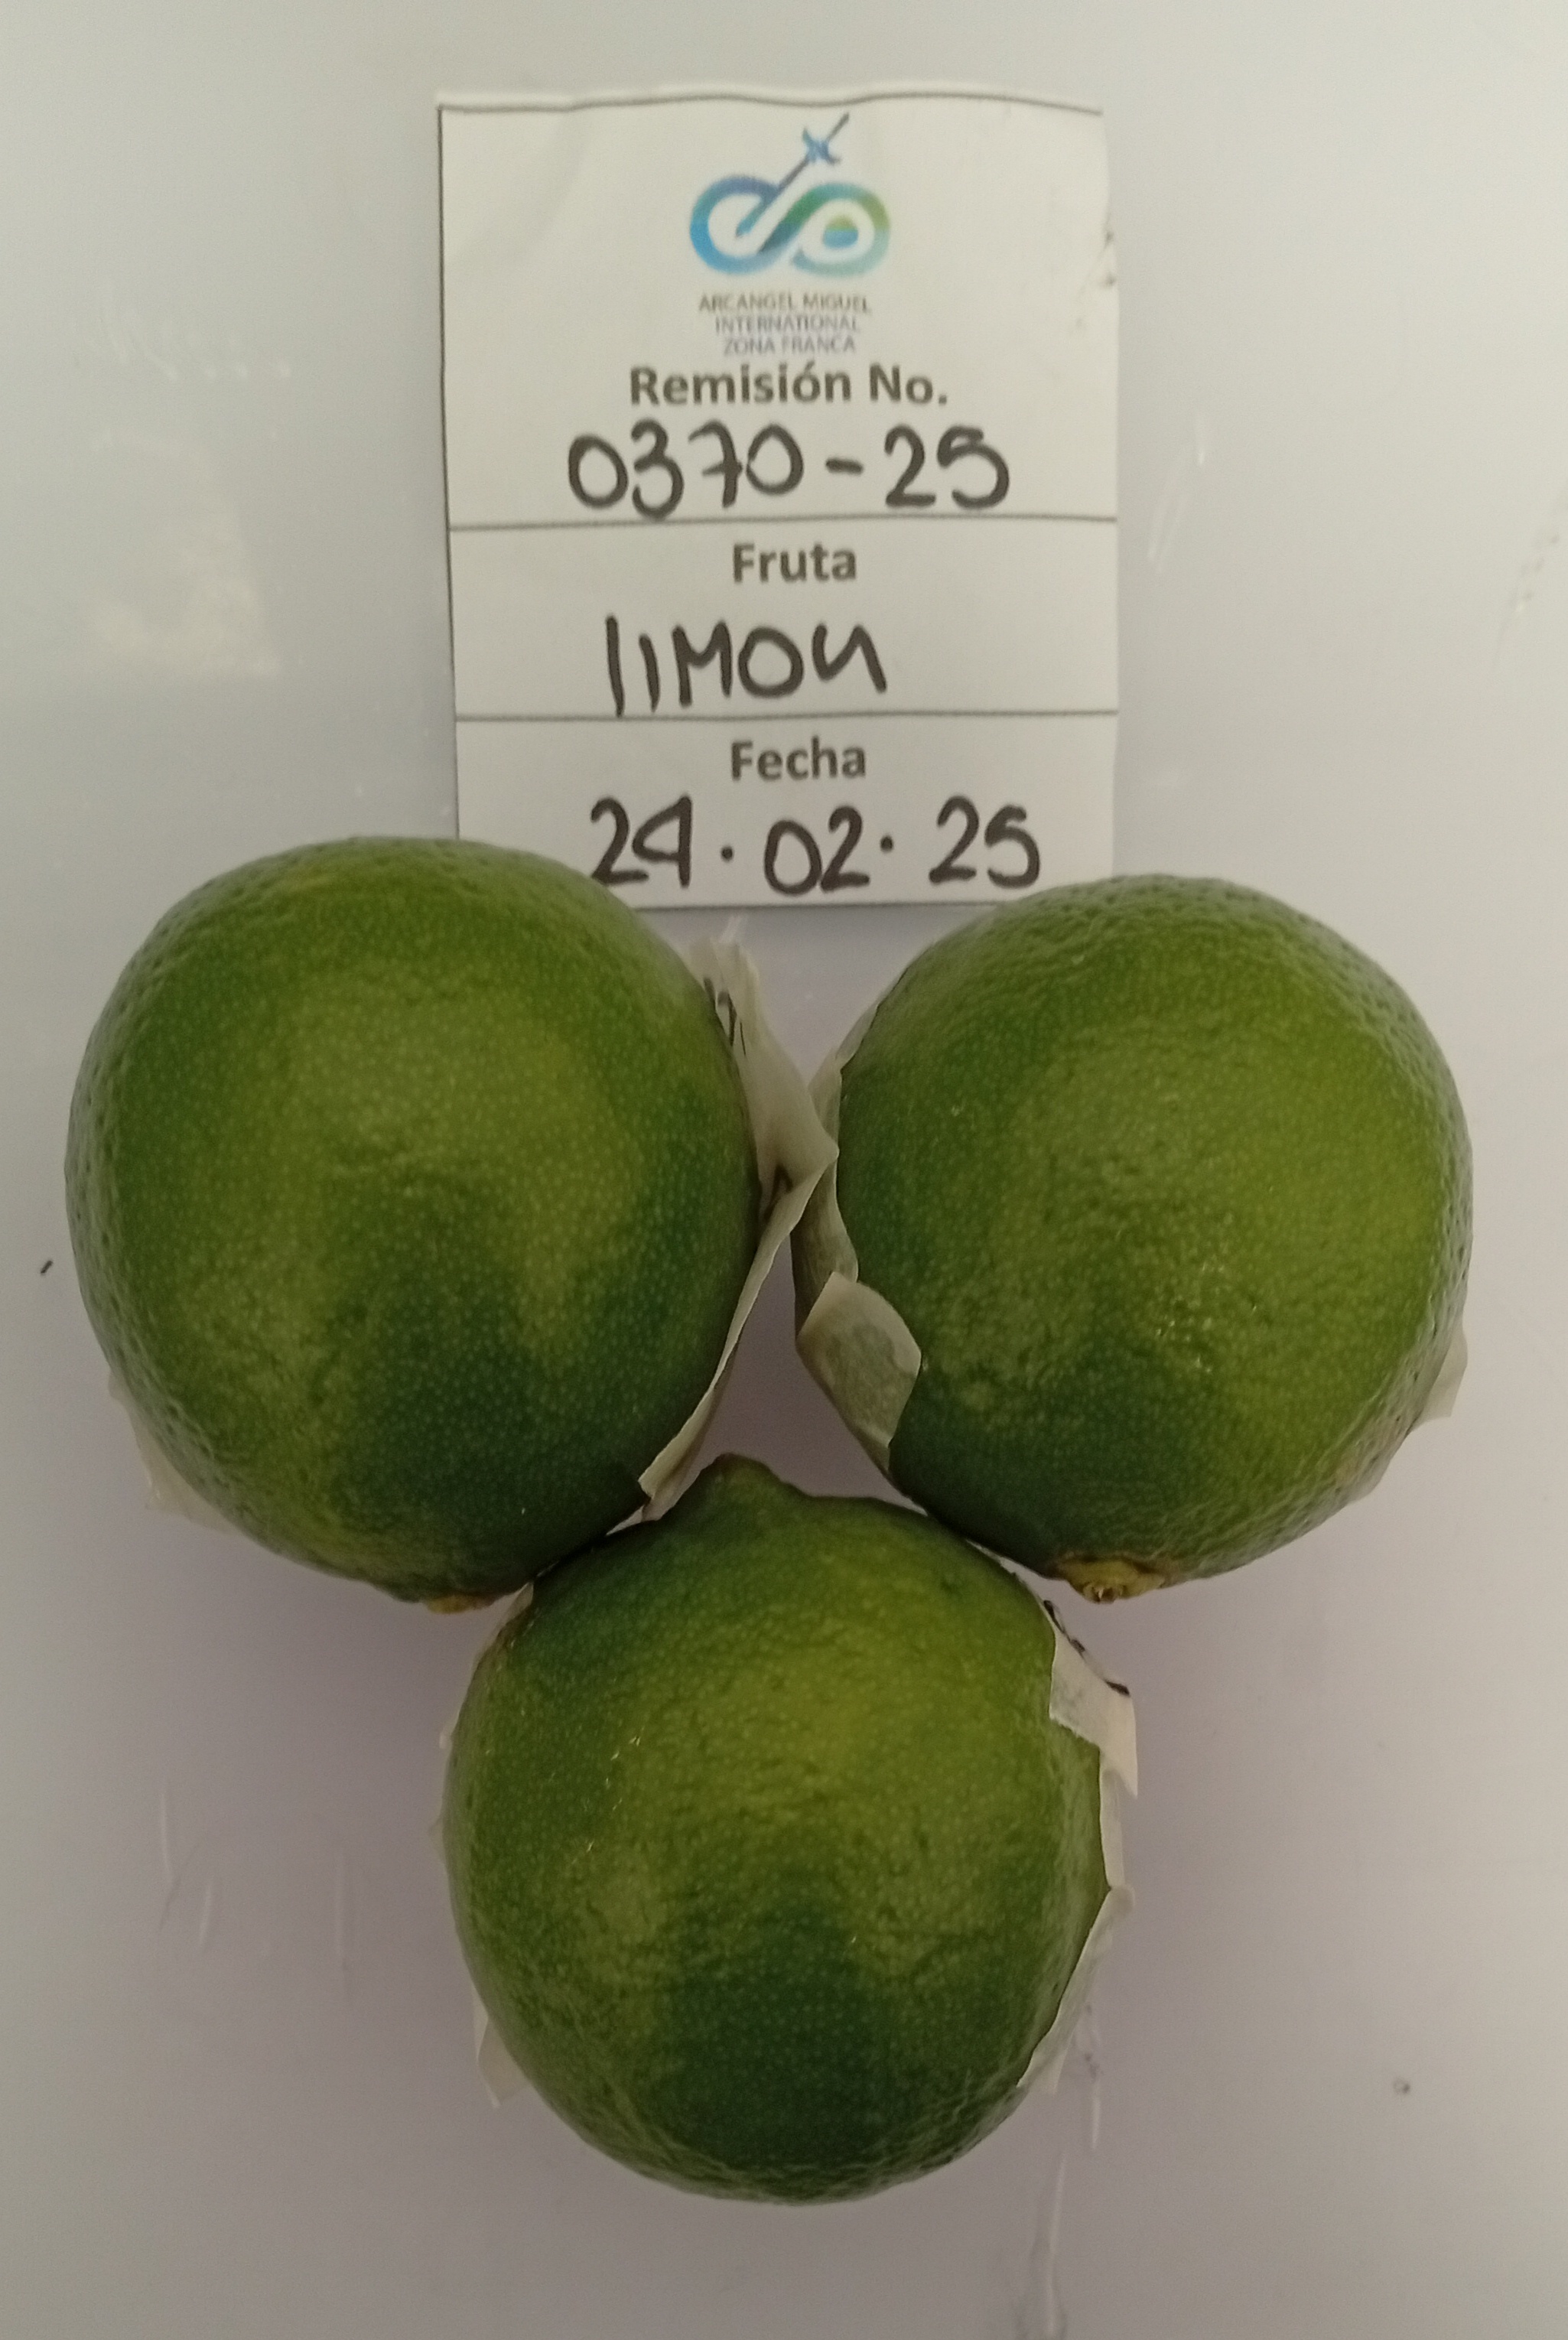 ARCANGEL MIGUEL
INTERNATIONAL
ZONA FRANCA
Remisión No.
0370-25
Fruta
lIMON
Fecha
24.02.25